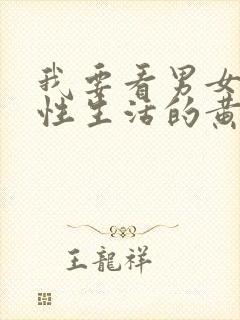 我要看男女
性生活的黄
王龍祥